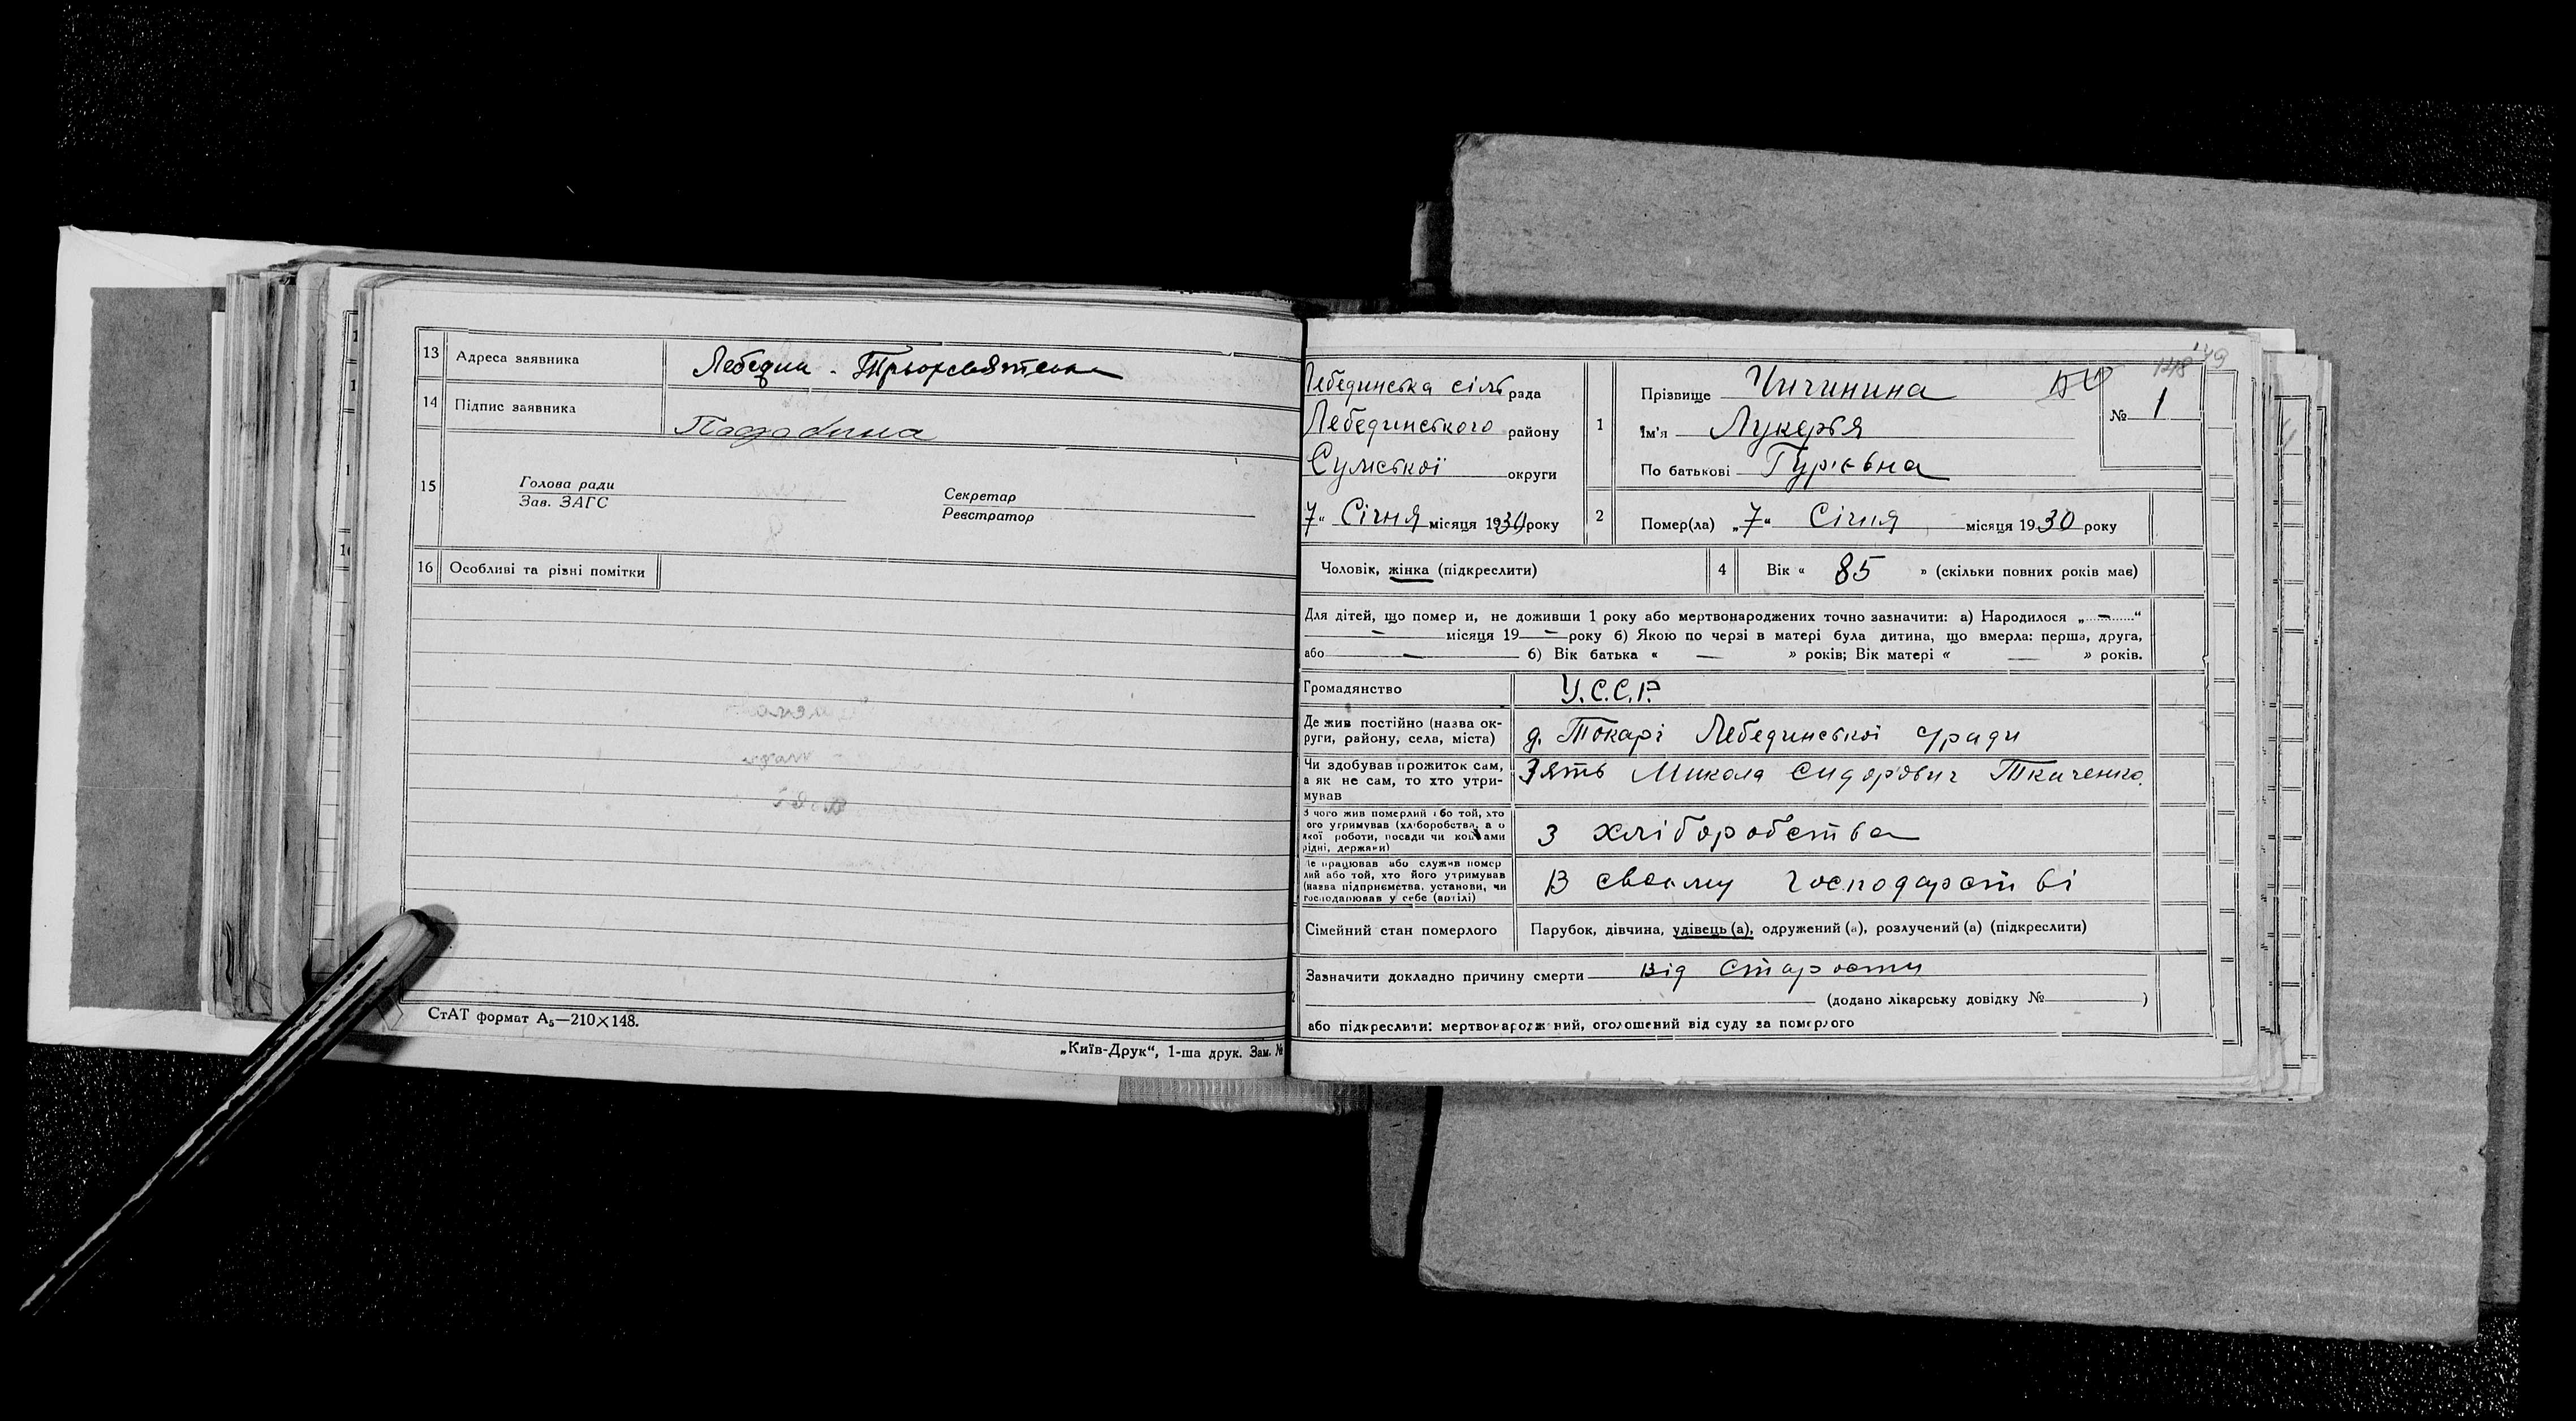 13 Адреса заявника Лебедин - Трьохсвятська
14 Підпис заявника
15 Голова ради
Зав. ЗАГС
Секретар
Реєстратор
16 Особливі та різні помітки
СтАТ формат А₅—210×148.
„Київ-Друк“, 1-ша друк. Зам. №
Лебединська сіль рада
Лебединського району
Сумської округи
7“ Січня місяця 1930 року
1 Прізвище Чичинина
Ім'я Лукерья
По батькові Гурієвна
№ 1
2 Помер(ла) „7“ Січня місяця 1930 року
Чоловік, жінка (підкреслити)
4 Вік « 85 » (скільки повних років має)
Для дітей, що помер и, не доживши 1 року або мертвонароджених точно зазначити: а) Народилося „ — “
— місяця 19 — року б) Якою по черзі в матері була дитина, що вмерла: перша, друга,
або — б) Вік батька « — » років; Вік матері « — » років.
Громадянство У.С.С.Р.
Де жив постійно (назва ок-
руги, району, села, міста) д. Токарі Лебединської с/ради
Чи здобував прожиток сам,
а як не сам, то хто утри-
мував Зять Микола Сидорович Ткаченко
З чого жив померлий або той, хто
ого утримував (хліборобства, а о
якої роботи, посади чи коштами
рідні, держави) з хліборобства
Де працював або служив помер
лий або той, хто його утримував
(назва підприємства, установи, чи
господарював у себе (артілі) В своєму господарстві
Сімейний стан померлого Парубок, дівчина, удівець (а), одружений (а), розлучений (а) (підкреслити)
Зазначити докладно причину смерти від старости
(додано лікарську довідку № )
або підкреслити: мертвонароджений, оголошений від суду за померлого